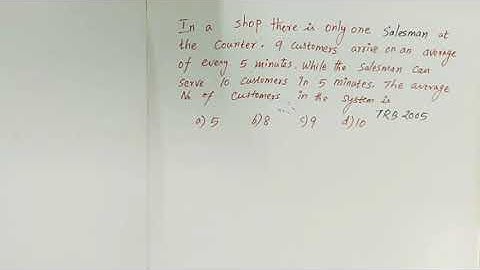 In a shop there is only one Salesman at
the Counter. 9 customers arrive on an average
of every 5 minutes. While the Salesman can
serve 10 customers in 5 minutes. The average
No of customers in the system is
TRB 2005
a) 5 b) 8 c) 9 d) 10